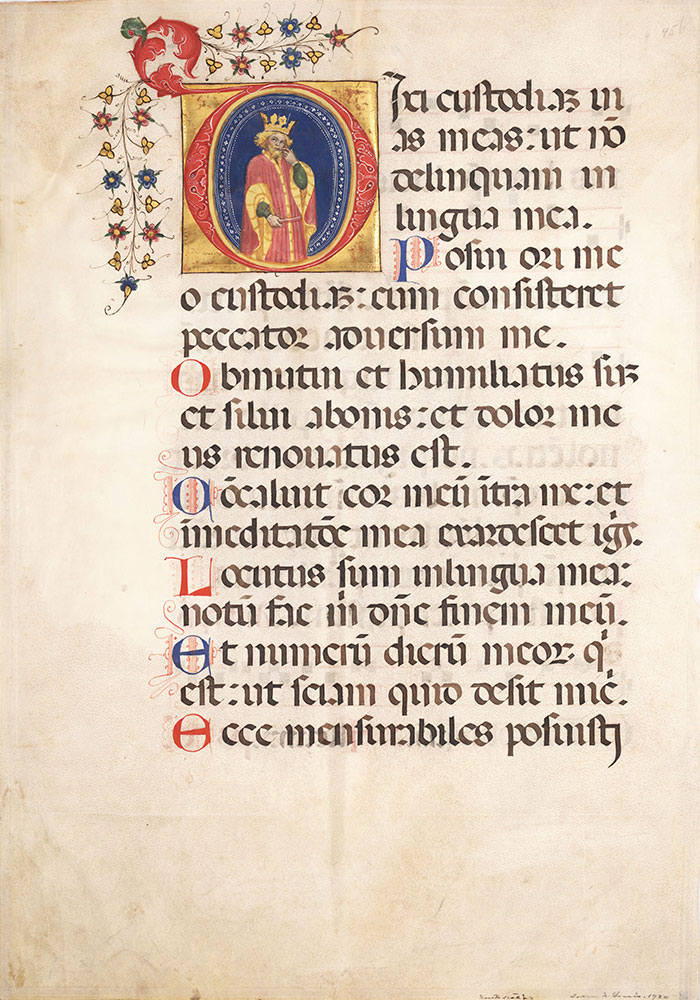 Dixi custodiaʒ ui
as meas: ut nō
delinquam in
lingua mea.
Posui ori me
o custodiaʒ: cum consisteret
peccator aduersum me.
Obmutui et humiliatus suʒ
et silui abonis: et dolor me
us renouatus est.
Cōcaluit cor meū ītra me: et
īmeditatōe mea exardescet igīs.
Locutus sum inlingua mea:
notū fac m̄ dn̄e finem meū.
Et numerū dierū meoꝝ. q̄
est: ut sciam quid desit mic̄.
Ecce mensurabiles posuisti